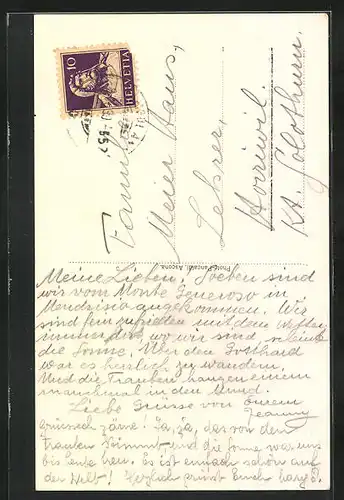 10
HELVETIA
Familie
Meier Hans,
Lehrer,
Horriwil.
Kt. Solothurn.
Photo Pancaldi, Ascona
Meine Lieben. Soeben sind
wir vom Monte Generoso in
Mendrisio angekommen. Wir
sind fein zufrieden mit dem Wetter
immer wo wir sind scheint
die Sonne. Über den Gotthard
war es herrlich zu wandern.
Und die Trauben hangen einem
manchmal in den Mund.
Liebe Grüsse von Eurem
Jeanny
Ja, ja, das von den
Trauben stimmt und die Sonne war uns
bis heute Es ist einfach schön auf
der Welt! Herzlich grüsst Euch